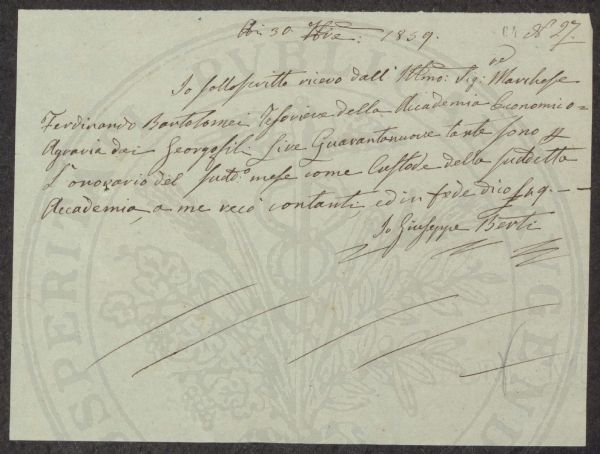 A: 30. 9bre: 1859. N 27.
Io sottoscritto ricevo dall' Illmo: Sig:re Marchese
Ferdinando Bartolomei Tesoriere della Accademia Economico=
Agraria dei Georgofili Lire Quarantanuove tante sono p
L'onorario del sudd:o mese come Custode della suddetta
Accademia, a me recò contanti, ed in fede dico £ 49. —
Io Giuseppe Berti